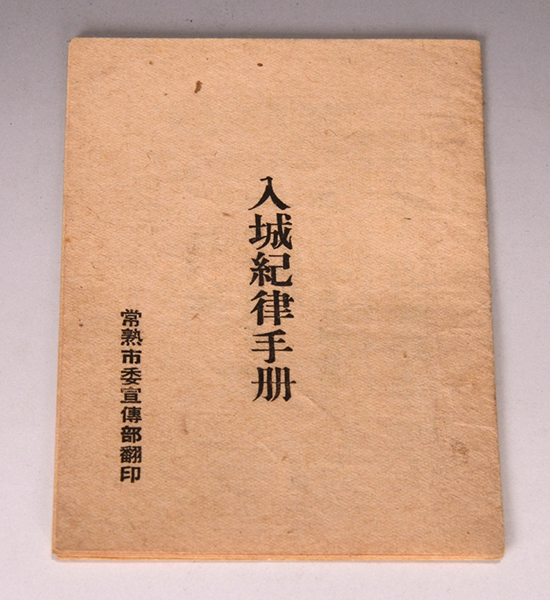 入城紀律手册
常熟市委宣傳部翻印